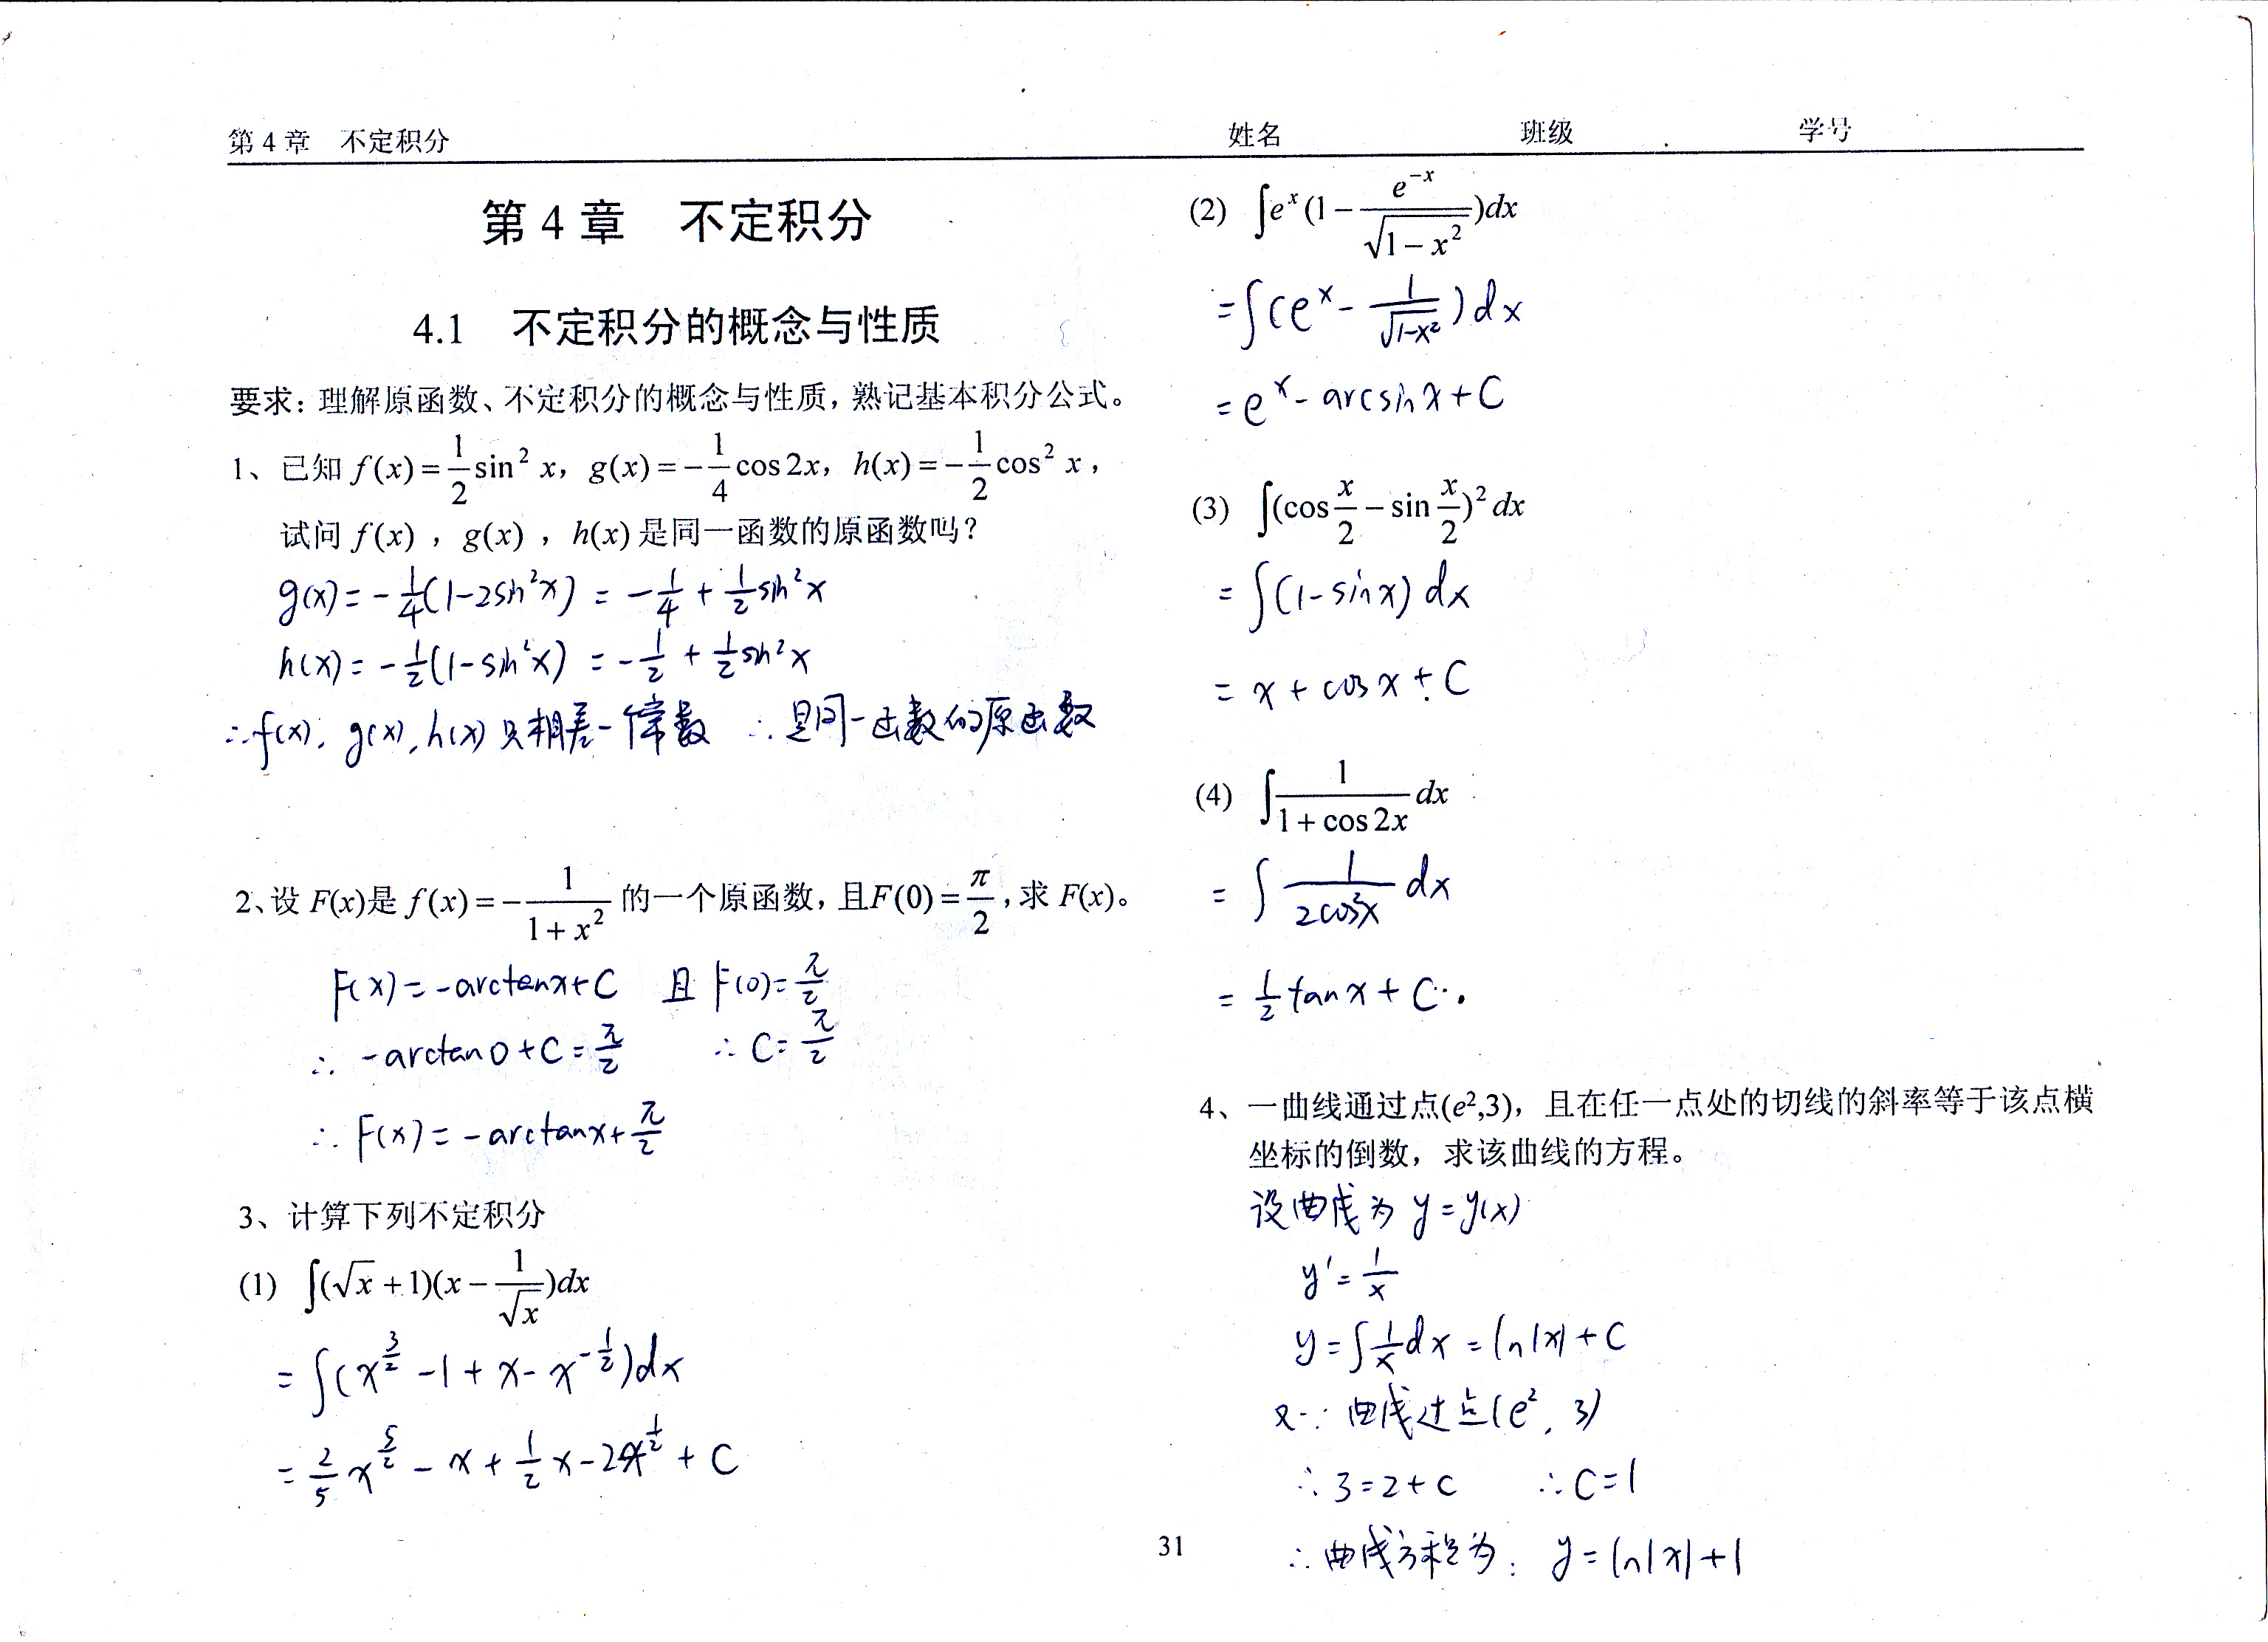 第 4 章 不定积分 姓名 班级 学号
第 4 章 不定积分
4.1 不定积分的概念与性质
要求：理解原函数、不定积分的概念与性质，熟记基本积分公式。
1、已知 f(x) = \frac{1}{2}sin² x, g(x) = -\frac{1}{4}cos 2x, h(x) = -\frac{1}{2}cos² x ,
试问 f(x) , g(x) , h(x) 是同一函数的原函数吗？
g(x) = -\frac{1}{4}(1-2sin²x) = -\frac{1}{4} + \frac{1}{2}sin²x
h(x) = -\frac{1}{2}(1-sin²x) = -\frac{1}{2} + \frac{1}{2}sin²x
∴ f(x), g(x), h(x) 只相差一个常数 ∴ 是同一函数的原函数
2、设 F(x)是 f(x) = -\frac{1}{1+x²} 的一个原函数，且F(0) = \frac{π}{2}，求 F(x)。
F(x) = -arctanx+C 且 F(0)=\frac{π}{2}
∴ -arctan0+C=\frac{π}{2} ∴ C=\frac{π}{2}
∴ F(x) = -arctanx+\frac{π}{2}
3、计算下列不定积分
(1) ∫(√x +1)(x - \frac{1}{√x})dx
= ∫(x^{\frac{3}{2}} -1 + x - x^{-\frac{1}{2}})dx
= \frac{2}{5}x^{\frac{5}{2}} - x + \frac{1}{2}x - 2x^{\frac{1}{2}} + C
(2) ∫e^x(1 - \frac{e^{-x}}{\sqrt{1-x²}})dx
= ∫(e^x - \frac{1}{\sqrt{1-x²}})dx
= e^x - arcsinx + C
(3) ∫(cos\frac{x}{2} - sin\frac{x}{2})² dx
= ∫(1-sinx) dx
= x + cosx + C
(4) ∫\frac{1}{1+cos2x}dx
= ∫\frac{1}{2cos²x}dx
= \frac{1}{2}tanx + C.
4、一曲线通过点(e²,3)，且在任一点处的切线的斜率等于该点横
坐标的倒数，求该曲线的方程。
设曲线为 y=y(x)
y'=\frac{1}{x}
y=∫\frac{1}{x}dx = ln|x| + C
又∵ 曲线过点(e², 3)
∴ 3=2+C ∴ C=1
∴ 曲线方程为: y=ln|x|+1
31